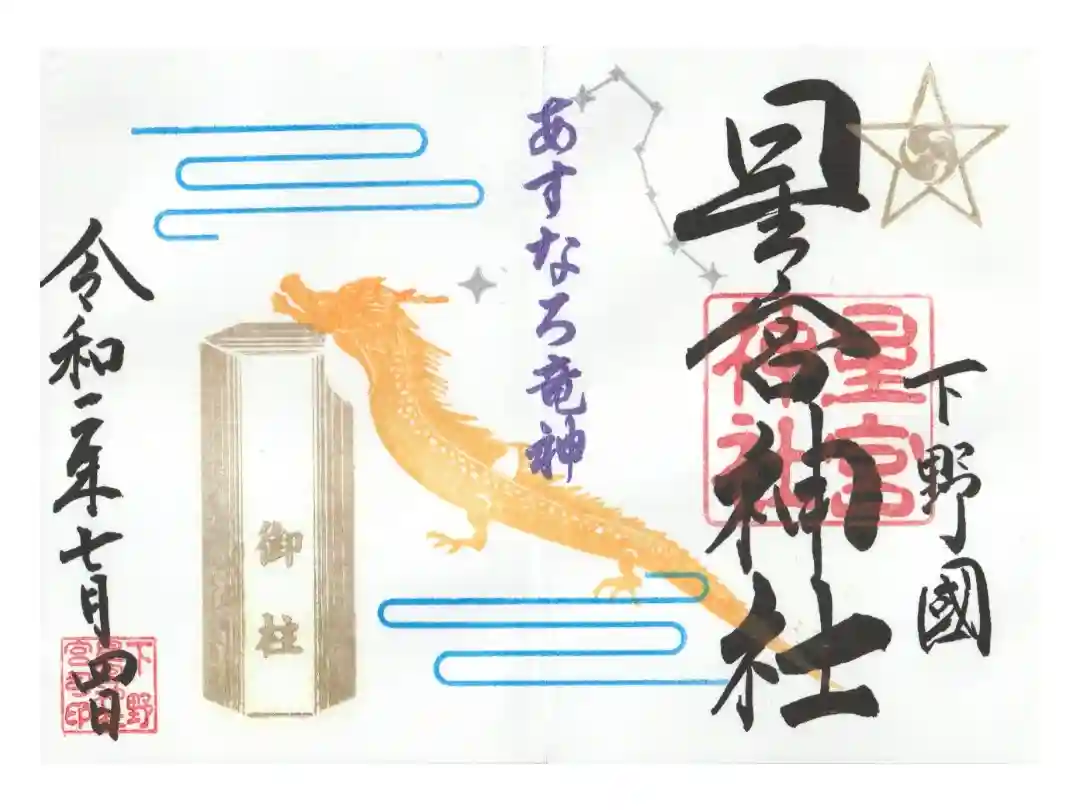 下野國
星宮神社
星宮
神社
あすなろ竜神
御柱
令和二年七月四日
下野
宮司印